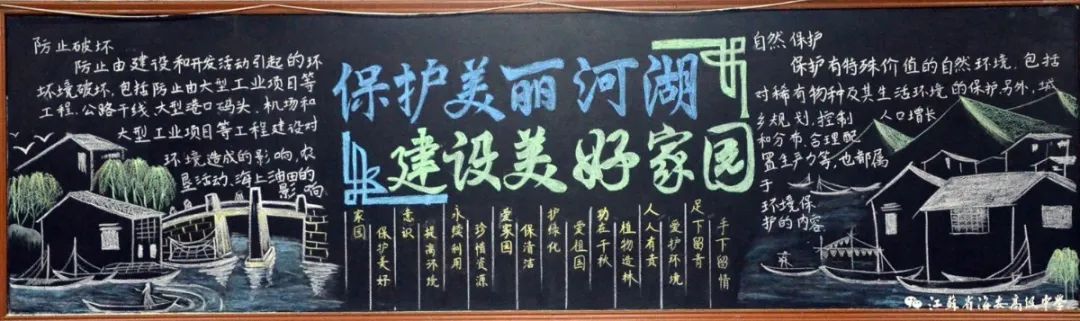 防止破坏
防止由建设和开发活动引起的环
环境破坏,包括防止由大型工业项目等
工程,公路干线,大型港口码头,机场和
大型工业项目等工程建设对
环境造成的影响,农
垦活动、海上油田的
影响
保护美丽河湖
建设美好家园
手下留情
足下留青
爱护环境
人人有责
植物造林
功在千秋
爱祖国
护绿化
保清洁
爱家园
珍惜资源
永续利用
提高环境
意识
保护美好
家园
自然保护
保护有特殊价值的自然环境,包括
对稀有物种及其生活环境的保护另外,城
乡规划,控制人口增长
和分布,合理配
置生产力等,也都属
于
环境保
护的内容
江苏省海安高级中学